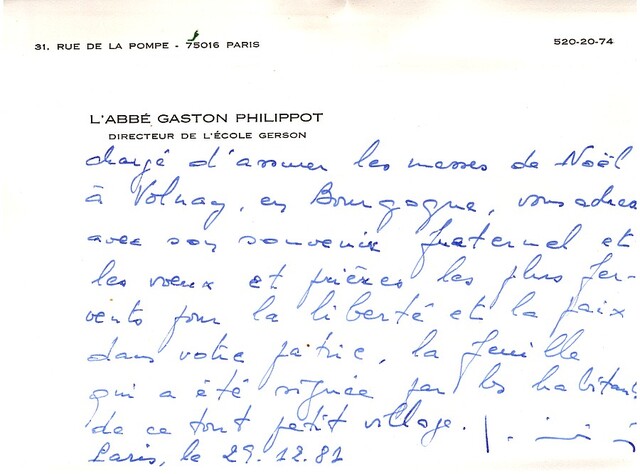 31, RUE DE LA POMPE - 75016 PARIS
520-20-74
L'ABBÉ GASTON PHILIPPOT
DIRECTEUR DE L'ÉCOLE GERSON
chargé d'assurer les messes de Noël
à Volnay, en Bourgogne, vous adresse
avec son souvenir fraternel et
les voeux et prières les plus fer-
vents pour la liberté et la paix
dans votre patrie, la feuille
qui a été signée par les habitants
de ce tout petit village.
Paris, le 29.12.81